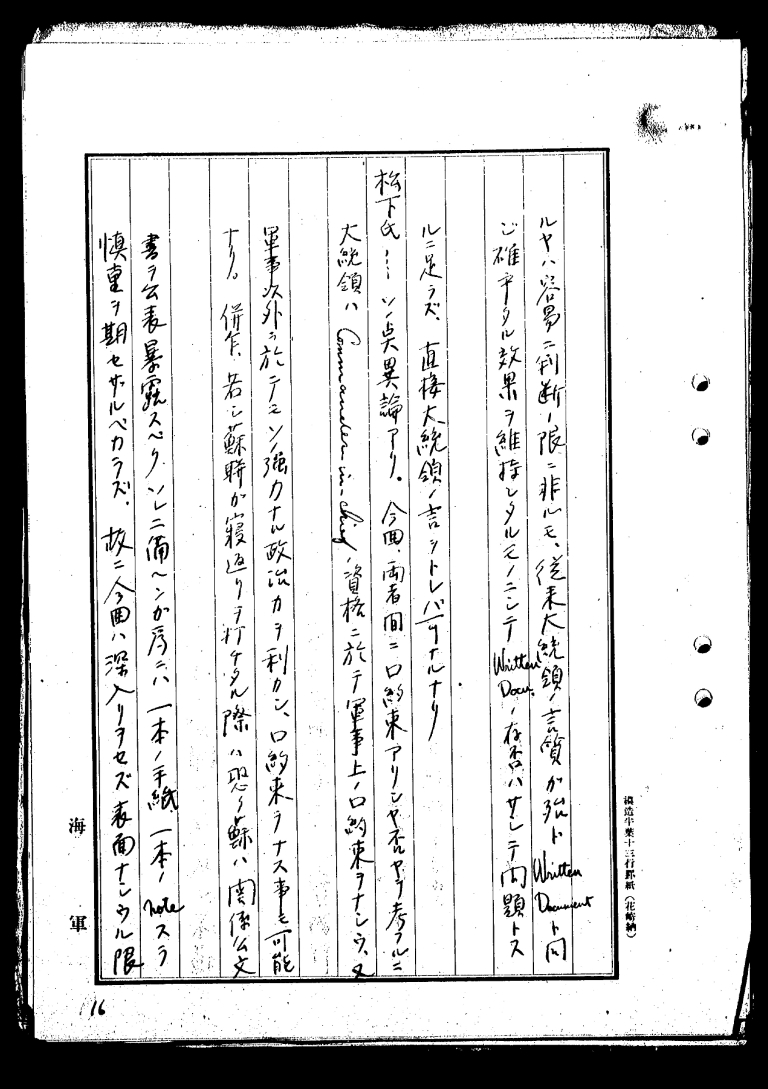 ルヤハ容易ニ判断ノ限ニ非ルモ、従来大統領ノ言質ガ殆ド Written Document ト同
ジ確乎タル効果ヲ維持シタルモノニシテ Written Docu. ノ存否ハサシテ問題トス
ルニ足ラズ、直接大統領ノ言シトレバ可ナルナリ
松下氏……ソノ点異論アリ。今回、両者間ニ口約束アリシヤ否ヤヲ考フルニ
大統領ハ Commander-in-chief ノ資格ニ於テ軍事上ノ口約束ヲナシウ、又
軍事以外ニ於テモソノ強力ナル政治力ヲ利カシ、口約束ヲナス事モ可能
ナリ。併乍、若シ蘇聯ガ寝返リヲ打チタル際ハ恐ク蘇ハ関係公文
書ヲ公表暴露スベク、ソレニ備ヘンガ為ニハ一本ノ手紙、一本ノ note スラ
慎重ヲ期セザルベカラズ、故ニ今回ハ深入リヲセズ表面ナシウル限
海軍
16